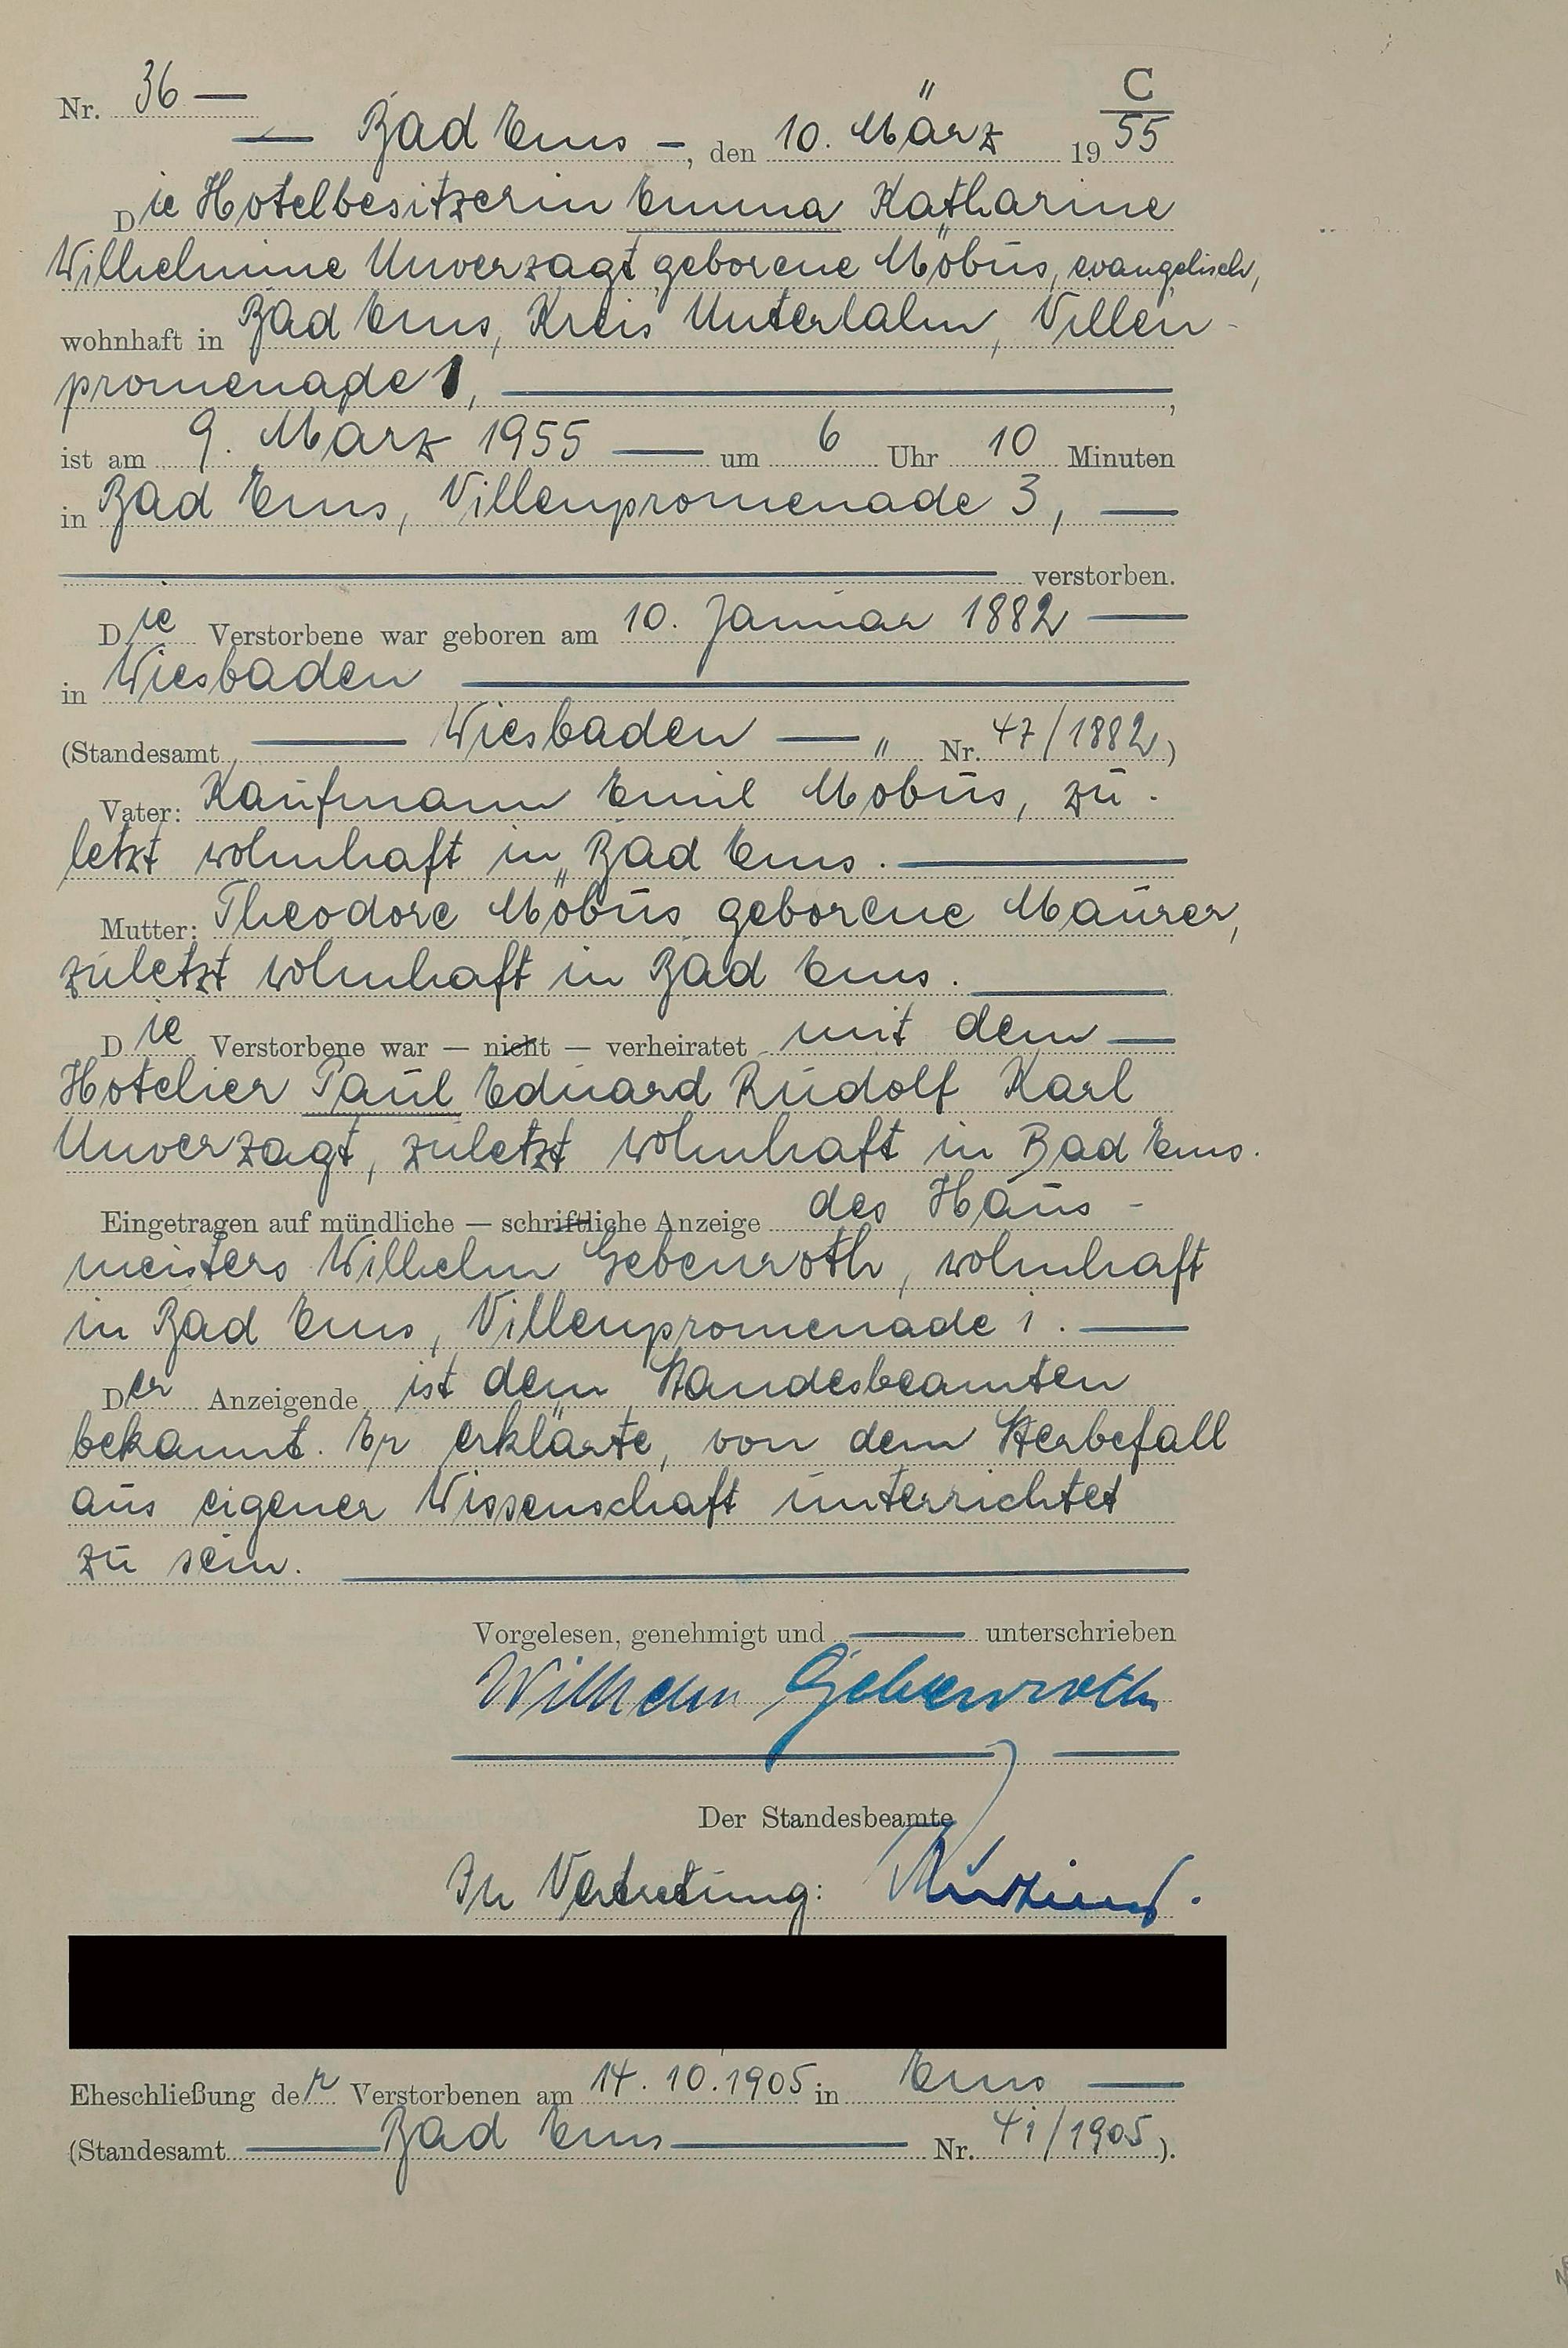 C
Nr. 36 —
— Bad Ems —, den 10. März 1955
Die Hotelbesitzerin Emma Katharine
Wilhelmine Unverzagt geborene Möbus, evangelisch,
wohnhaft in Bad Ems, Kreis Unterlahn, Villen-
promenade 1, —,
ist am 9. März 1955 — um 6 Uhr 10 Minuten
in Bad Ems, Villenpromenade 3, —
— verstorben.
Die Verstorbene war geboren am 10. Januar 1882 —
in Wiesbaden —
(Standesamt — Wiesbaden — Nr. 47/1882)
Vater: Kaufmann Emil Möbus, zu-
letzt wohnhaft in Bad Ems. —
Mutter: Theodore Möbus geborene Maurer,
zuletzt wohnhaft in Bad Ems. —
Die Verstorbene war — nicht — verheiratet mit dem —
Hotelier Paul Eduard Rudolf Karl
Unverzagt, zuletzt wohnhaft in Bad Ems.
Eingetragen auf mündliche — schriftliche Anzeige des Haus-
meisters Wilhelm Gebenroth, wohnhaft
in Bad Ems, Villenpromenade 1. —
Der Anzeigende ist dem Standesbeamten
bekannt. Er erklärte, von dem Sterbefall
aus eigener Wissenschaft unterrichtet
zu sein. —
Vorgelesen, genehmigt und — unterschrieben
Wilhelm Gebenroth
Der Standesbeamte
In Vertretung:
Eheschließung der Verstorbenen am 14.10.1905 in Ems —
(Standesamt — Bad Ems — Nr. 41/1905).